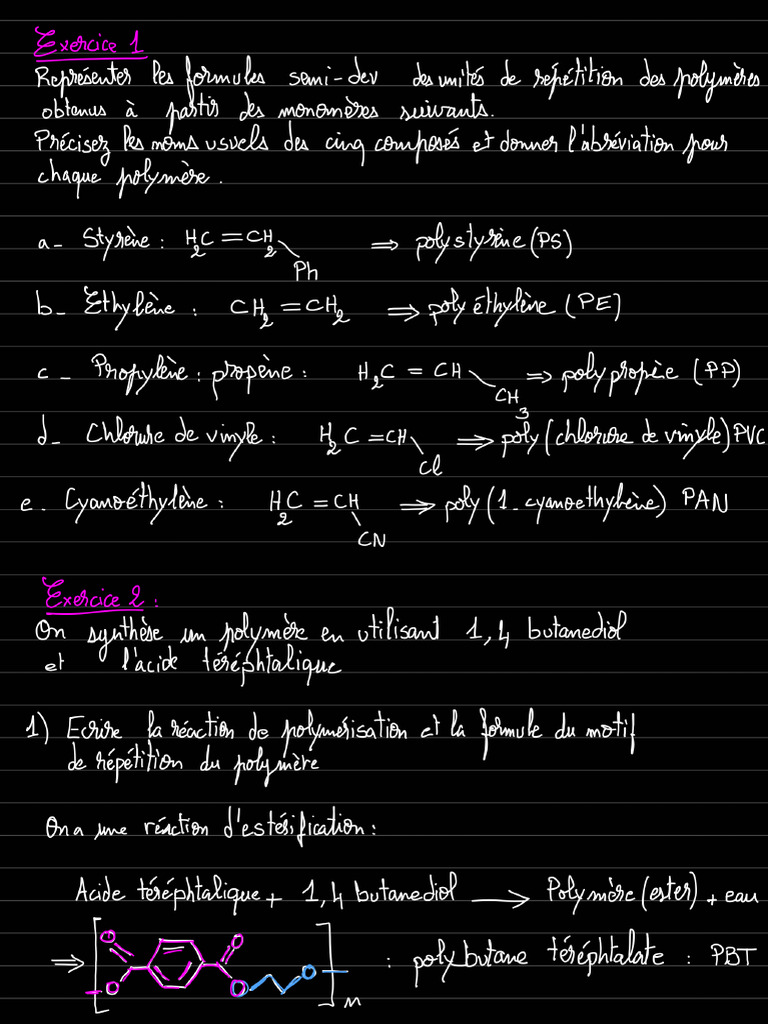 Exercice 1
Représenter les formules semi-dev des unités de répétition des polymères
obtenus à partir des monomères suivants.
Précisez les noms usuels des cinq composés et donner l'abréviation pour
chaque polymère.
a- Styrène : H2C=CH2 Ph ⇒ polystyrène (PS)
b- Ethylène : CH2=CH2 ⇒ poly éthylène (PE)
c- Propylène : propène : H2C = CH CH3 ⇒ poly propèe (PP)
d- Chlorure de vinyle : H2C=CH Cl ⇒ poly (chlorure de vinyle) PVC
e. Cyanoéthylène : H2C = CH CN ⇒ poly (1-cyanoethylène) PAN
Exercice 2 :
On synthèse un polymère en utilisant 1,4 butanediol
et l'acide téréphtalique
1) Ecrire la réaction de polymérisation et la formule du motif
de répétition du polymère
On a une réaction d'estérification :
Acide téréphtalique + 1,4 butanediol → Polymère (ester) + eau
⇒ [ O O O O O ]n : polybutane téréphtalate : PBT